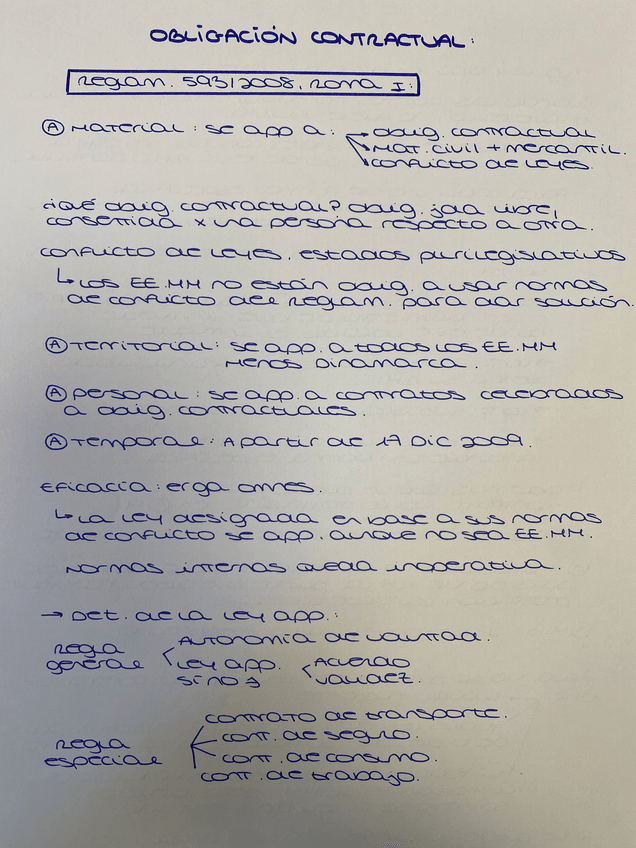 OBLIGACIÓN CONTRACTUAL:
Reglam. 593/2008, Roma I:
Ⓐ Material: se app a: → oblig. contractual
→ Mat. civil + mercantil.
→ conflicto de leyes.
¿Qué oblig. contractual? oblig. jca libre,
consentida x una persona respecto a otra.
Conflicto de leyes. estados plurilegislativos
↳ Los EE.MM no están oblig. a usar normas
de conflicto del Reglam. para dar solución.
Ⓐ Territorial: se app. a todos los EE.MM
menos Dinamarca.
Ⓐ Personal: se app. a contratos celebrados
a oblig. contractuales.
Ⓐ Temporal: A partir de 17 Dic 2009.
Eficacia: erga omnes.
↳ La ley designada en base a sus normas
de conflicto se app. aunque no sea EE.MM.
Normas internas queda inoperativa.
→ Det. de la Ley app.:
Regla general
Autonomía de voluntad.
Ley app. si no ∃
Acuerdo
validez.
Regla especial
contrato de transporte.
cont. de seguro.
cont. de consumo.
cont. de trabajo.